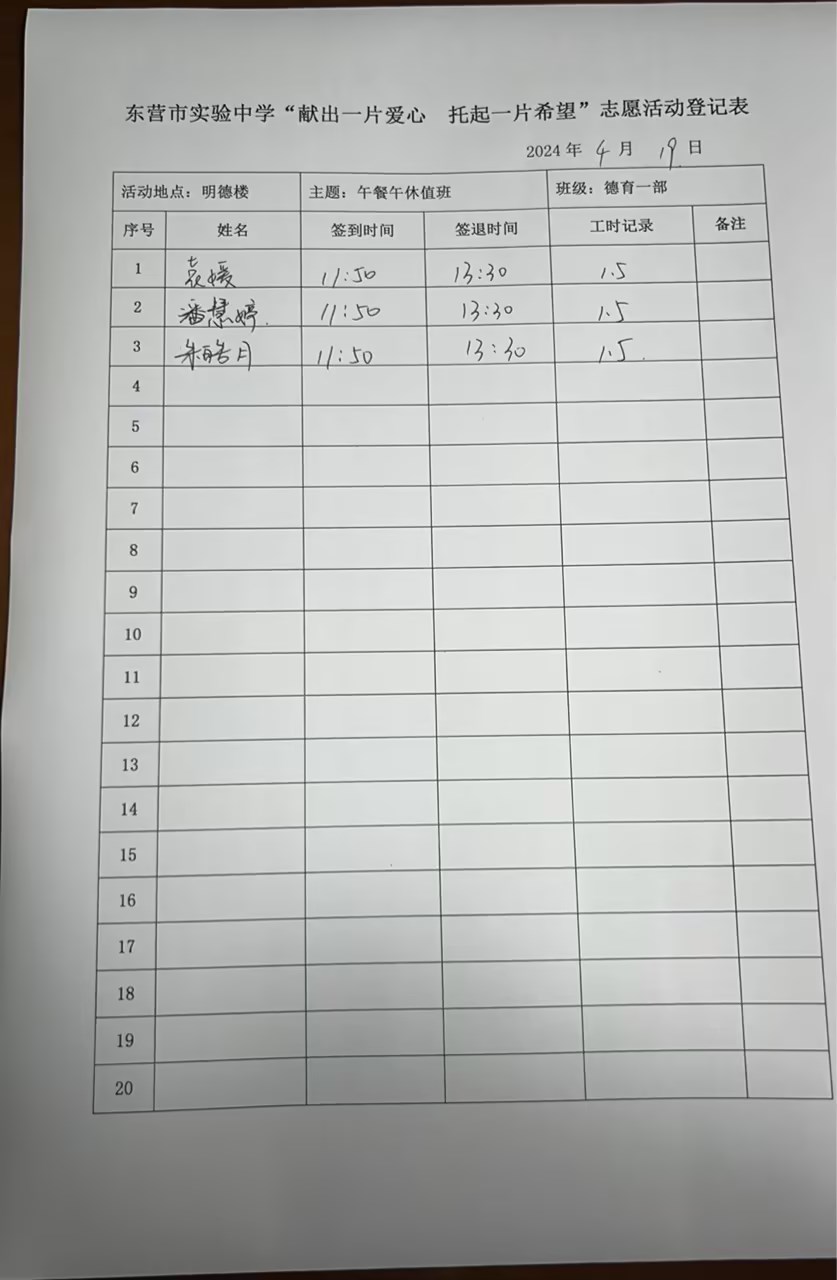 东营市实验中学“献出一片爱心 托起一片希望”志愿活动登记表
2024 年 4 月 19 日
活动地点：明德楼 主题：午餐午休值班 班级：德育一部
序号 姓名 签到时间 签退时间 工时记录 备注
1 袁媛 11:50 13:30 1.5
2 潘慧婷 11:50 13:30 1.5
3 朱皓月 11:50 13:30 1.5
4
5
6
7
8
9
10
11
12
13
14
15
16
17
18
19
20